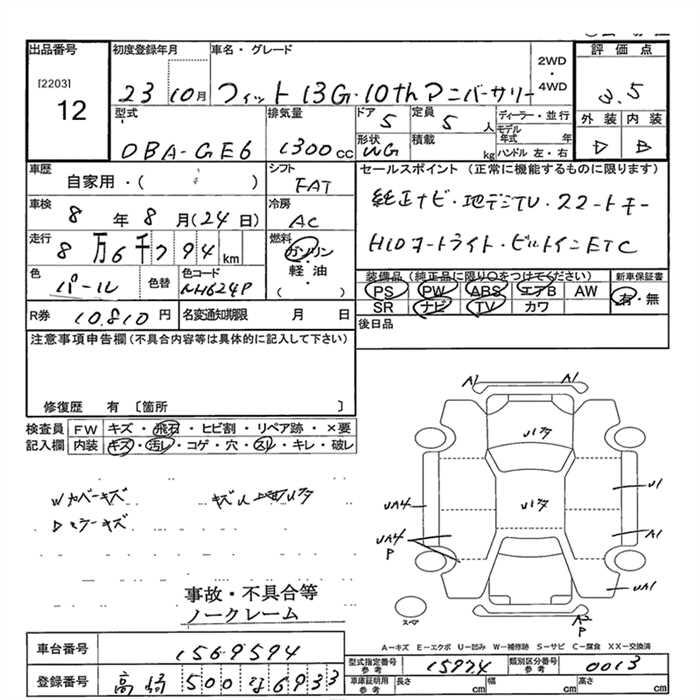 出品番号
[2203]
12
初度登録年月
23 10月
車名・グレード
フィット 13G・10thアニバーサリー
2WD
・
4WD
評価点
3.5
外装 内装
D B
型式
DBA-GE6
排気量
1300cc
ドア
5
定員
5人
形状
WG
積載
kg
ディーラー・並行
モデル年式 年
ハンドル 左・右
車歴
自家用・( )
シフト
FAT
車検
8年8月(24日)
冷房
AC
走行
8万6千794km
燃料
ガソリン
・
軽油
・
( )
色
パール
色替
色コード
NH624P
R券
10,810円
名変通知期限 月 日
セールスポイント(正常に機能するものに限ります)
純正ナビ・地デジTV・スマートキー
HIDオートライト・ビルトインETC
装備品(純正品に限り○をつけてください)
PS PW ABS エアB AW
SR ナビ TV カワ
新車保証書
有・無
後日品
注意事項申告欄(不具合内容等は具体的に記入して下さい)
修復歴 有 〔箇所 〕
検査員記入欄
FW キズ・飛石・ヒビ割・リペア跡・×要
内装 キズ・汚レ・コゲ・穴・スレ・キレ・破レ
Wカバーキズ
Dミラーキズ
A1 A1
U1
UA4
UA4
P
A1
UA1
A2
P
スペア
事故・不具合等
ノークレーム
A…キズ E…エクボ U…凹み W…補修跡 S…サビ C…腐食 XX…交換済
車台番号
1569594
登録番号
高崎 500 な 6933
型式指定番号
参考
15974
類別区分番号
参考
0013
車庫証明用
参考
長さ cm 幅 cm 高さ cm